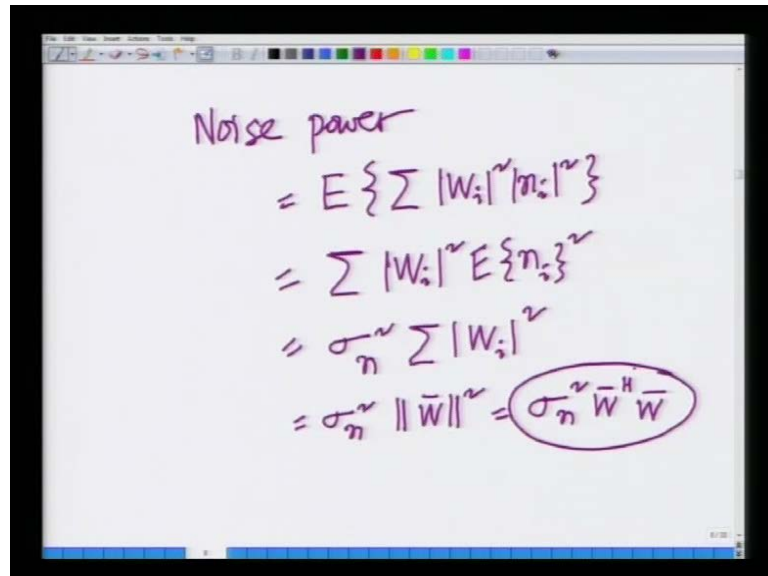 File Edit View Insert Actions Tools Help
Noise power
= E {Σ |W_i|² |n_i|²}
= Σ |W_i|² E{n_i}²
= σ_n² Σ |W_i|²
= σ_n² ‖W̄‖² = σ_n² W̄^H W̄